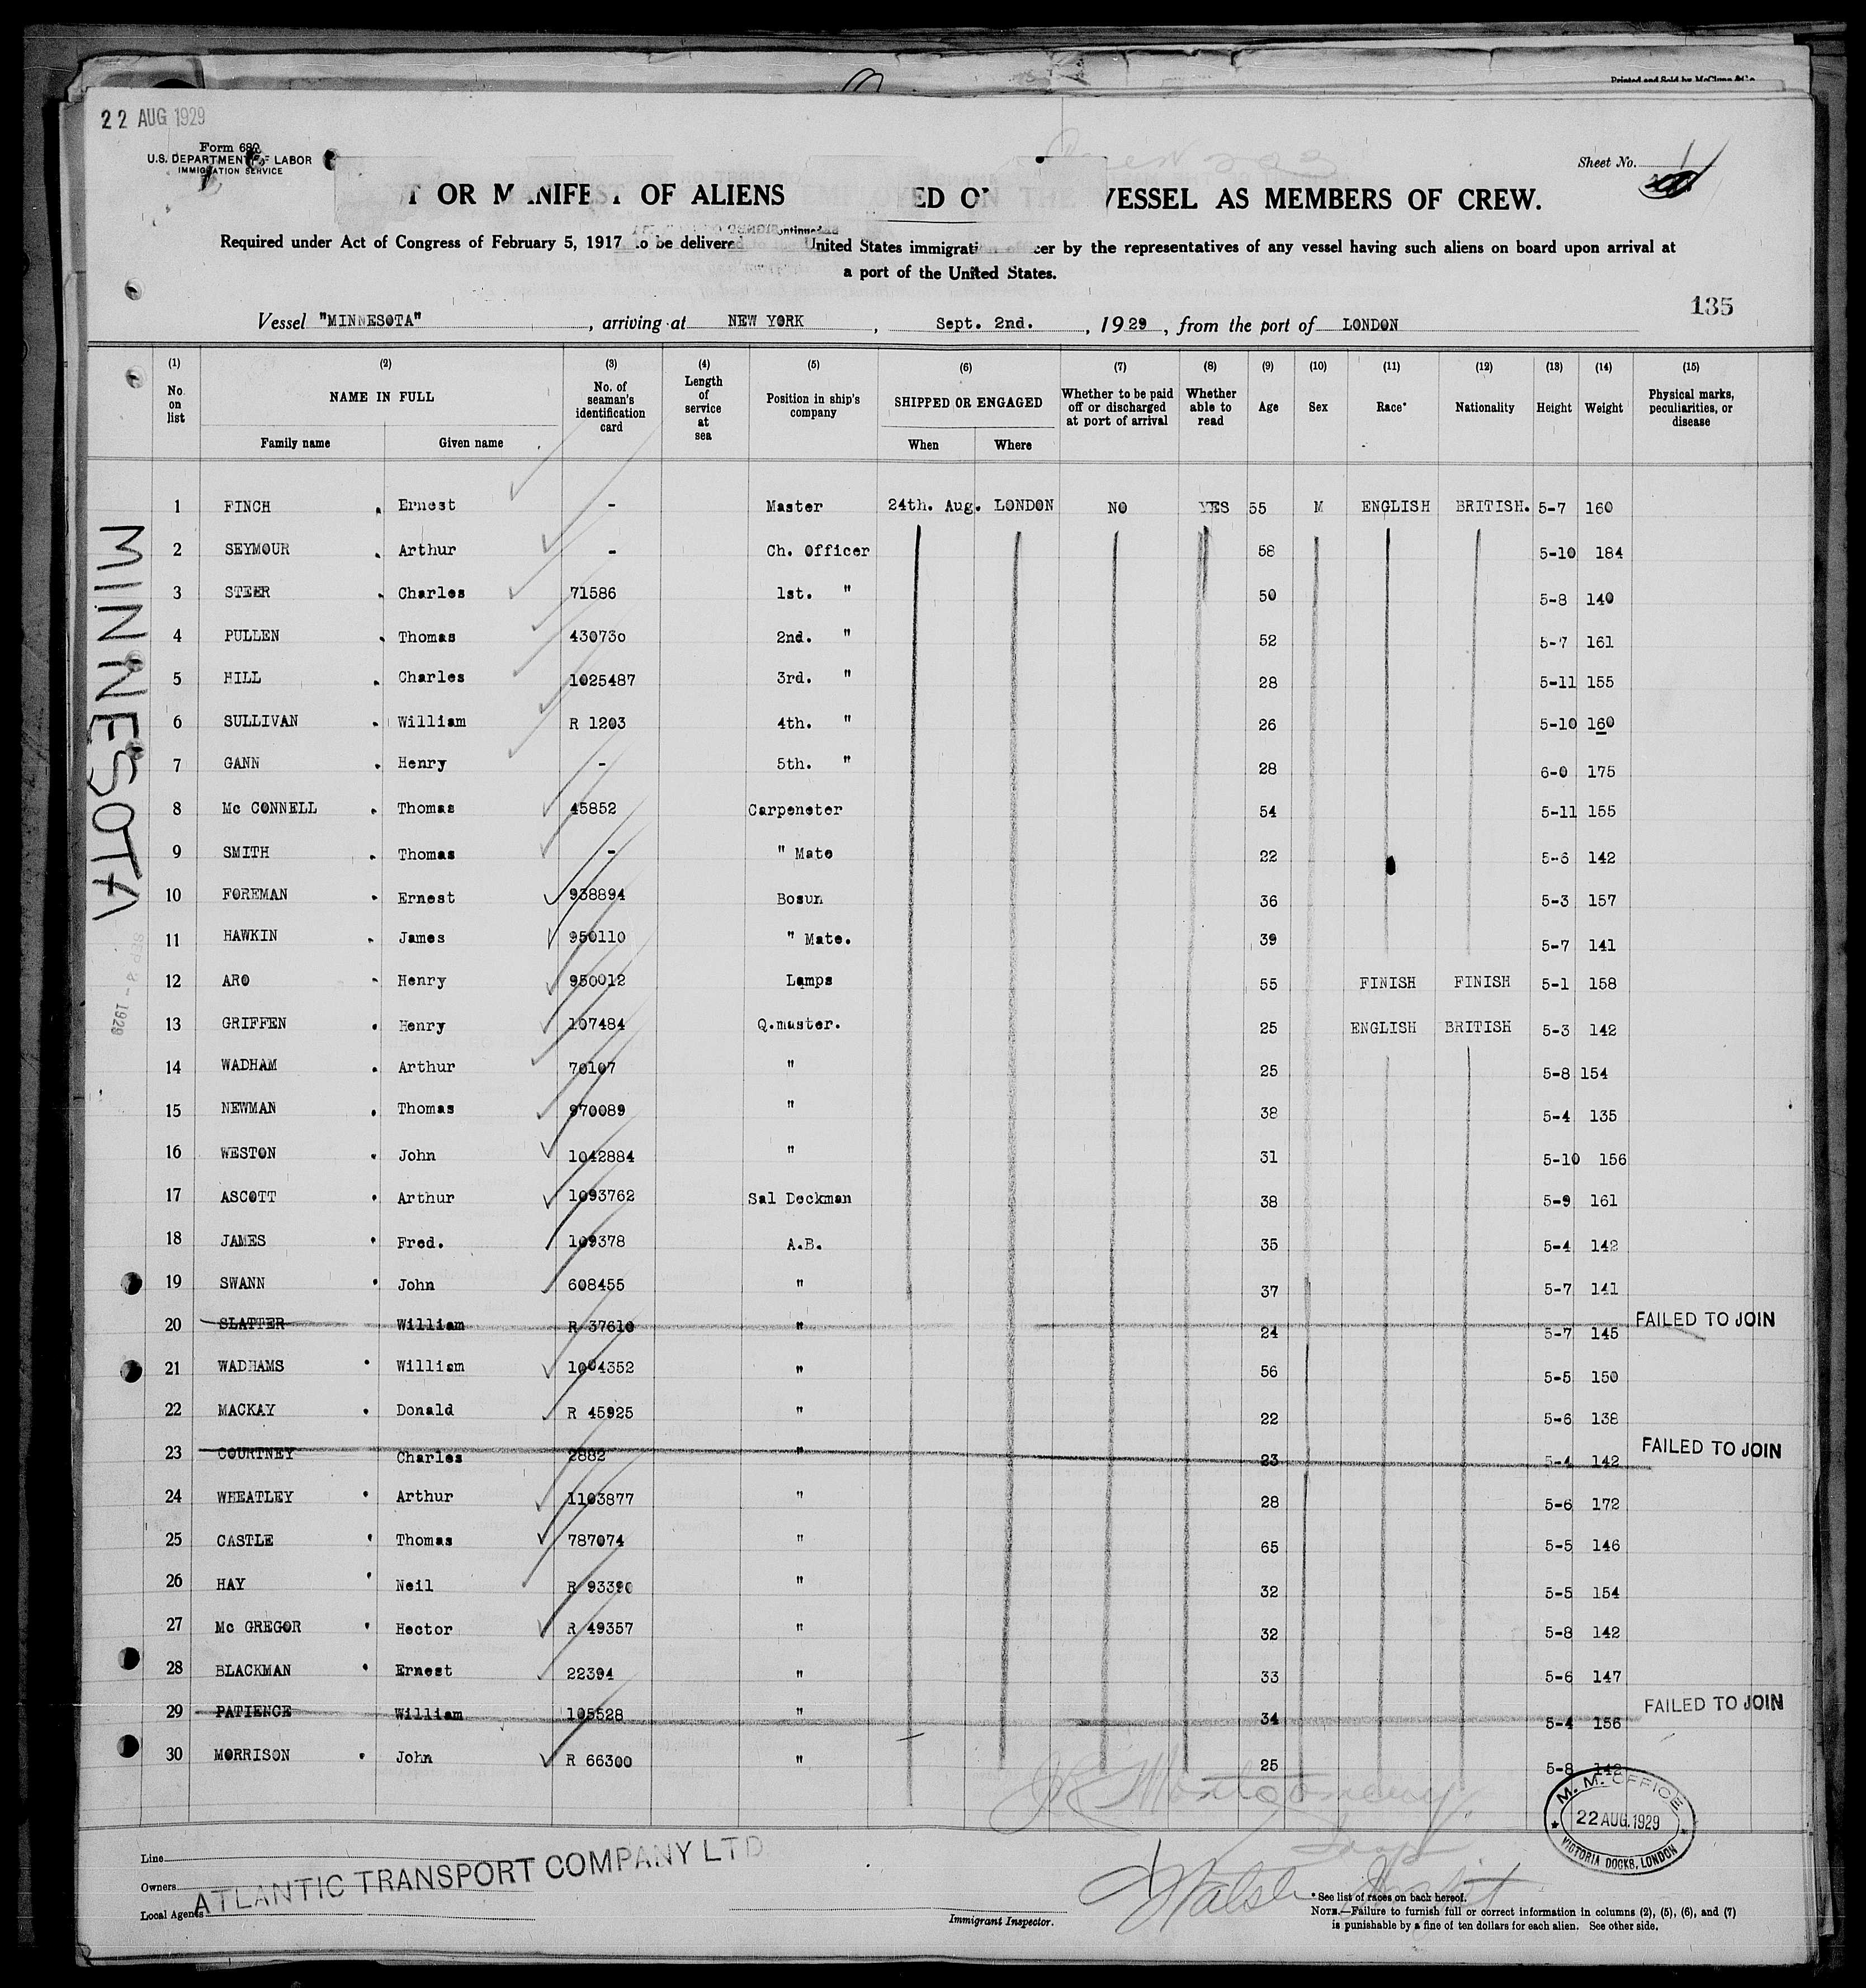 Printed and Sold by McClunn & Co
22 AUG 1929
Form 680
U.S. DEPARTMENT OF LABOR
IMMIGRATION SERVICE
Sheet No. 1
T OR MANIFEST OF ALIENS EMPLOYED ON THE VESSEL AS MEMBERS OF CREW.
Required under Act of Congress of February 5, 1917 to be delivered United States immigrati cer by the representatives of any vessel having such aliens on board upon arrival at
a port of the United States.
135
Vessel "MINNESOTA", arriving at NEW YORK, Sept. 2nd., 1929, from the port of LONDON
(1) (2) (3) (4) (5) (6) (7) (8) (9) (10) (11) (12) (13) (14) (15)
No. on list NAME IN FULL No. of seaman's identification card Length of service at sea Position in ship's company SHIPPED OR ENGAGED Whether to be paid off or discharged at port of arrival Whether able to read Age Sex Race* Nationality Height Weight Physical marks, peculiarities, or disease
Family name Given name When Where
1 FINCH Ernest - Master 24th. Aug. LONDON NO YES 55 M ENGLISH BRITISH. 5-7 160
2 SEYMOUR Arthur - Ch. Officer 58 5-10 184
3 STEER Charles 71586 1st. " 50 5-8 140
4 PULLEN Thomas 430730 2nd. " 52 5-7 161
5 HILL Charles 1025487 3rd. " 28 5-11 155
6 SULLIVAN William R 1203 4th. " 26 5-10 160
7 GANN Henry - 5th. " 28 6-0 175
8 Mc CONNELL Thomas 45852 Carpeneter 54 5-11 155
9 SMITH Thomas - " Mate 22 5-6 142
10 FOREMAN Ernest 938894 Bosun 36 5-3 157
11 HAWKIN James 950110 " Mate. 39 5-7 141
12 ARO Henry 950012 Lamps 55 FINISH FINISH 5-1 158
13 GRIFFEN Henry 107484 Q.master. 25 ENGLISH BRITISH 5-3 142
14 WADHAM Arthur 70107 " 25 5-8 154
15 NEWMAN Thomas 970089 " 38 5-4 135
16 WESTON John 1042884 " 31 5-10 156
17 ASCOTT Arthur 1093762 Sal Deckman 38 5-9 161
18 JAMES Fred. 109378 A.B. 35 5-4 142
19 SWANN John 608455 " 37 5-7 141
20 SLATTER William R 37610 " 24 5-7 145 FAILED TO JOIN
21 WADHAMS William 1004352 " 56 5-5 150
22 MACKAY Donald R 45925 " 22 5-6 138
23 COURTNEY Charles 2882 " 23 5-4 142 FAILED TO JOIN
24 WHEATLEY Arthur 1103877 " 28 5-6 172
25 CASTLE Thomas 787074 " 65 5-5 146
26 HAY Neil R 93390 " 32 5-5 154
27 Mc GREGOR Hector R 49357 " 32 5-8 142
28 BLACKMAN Ernest 22394 " 33 5-6 147
29 PATIENCE William 105528 " 34 5-4 156 FAILED TO JOIN
30 MORRISON John R 66300 " 25 5-8 142
MINNESOTA
SEP 2 - 1929
J R Montgomery
M. M. OFFICE
22 AUG. 1929
VICTORIA DOCKS, LONDON
Line
Owners
Local Agents
ATLANTIC TRANSPORT COMPANY LTD
Walsh
Immigrant Inspector.
* See list of races on back hereof.
NOTE.—Failure to furnish full or correct information in columns (2), (5), (6), and (7)
is punishable by a fine of ten dollars for each alien. See other side.